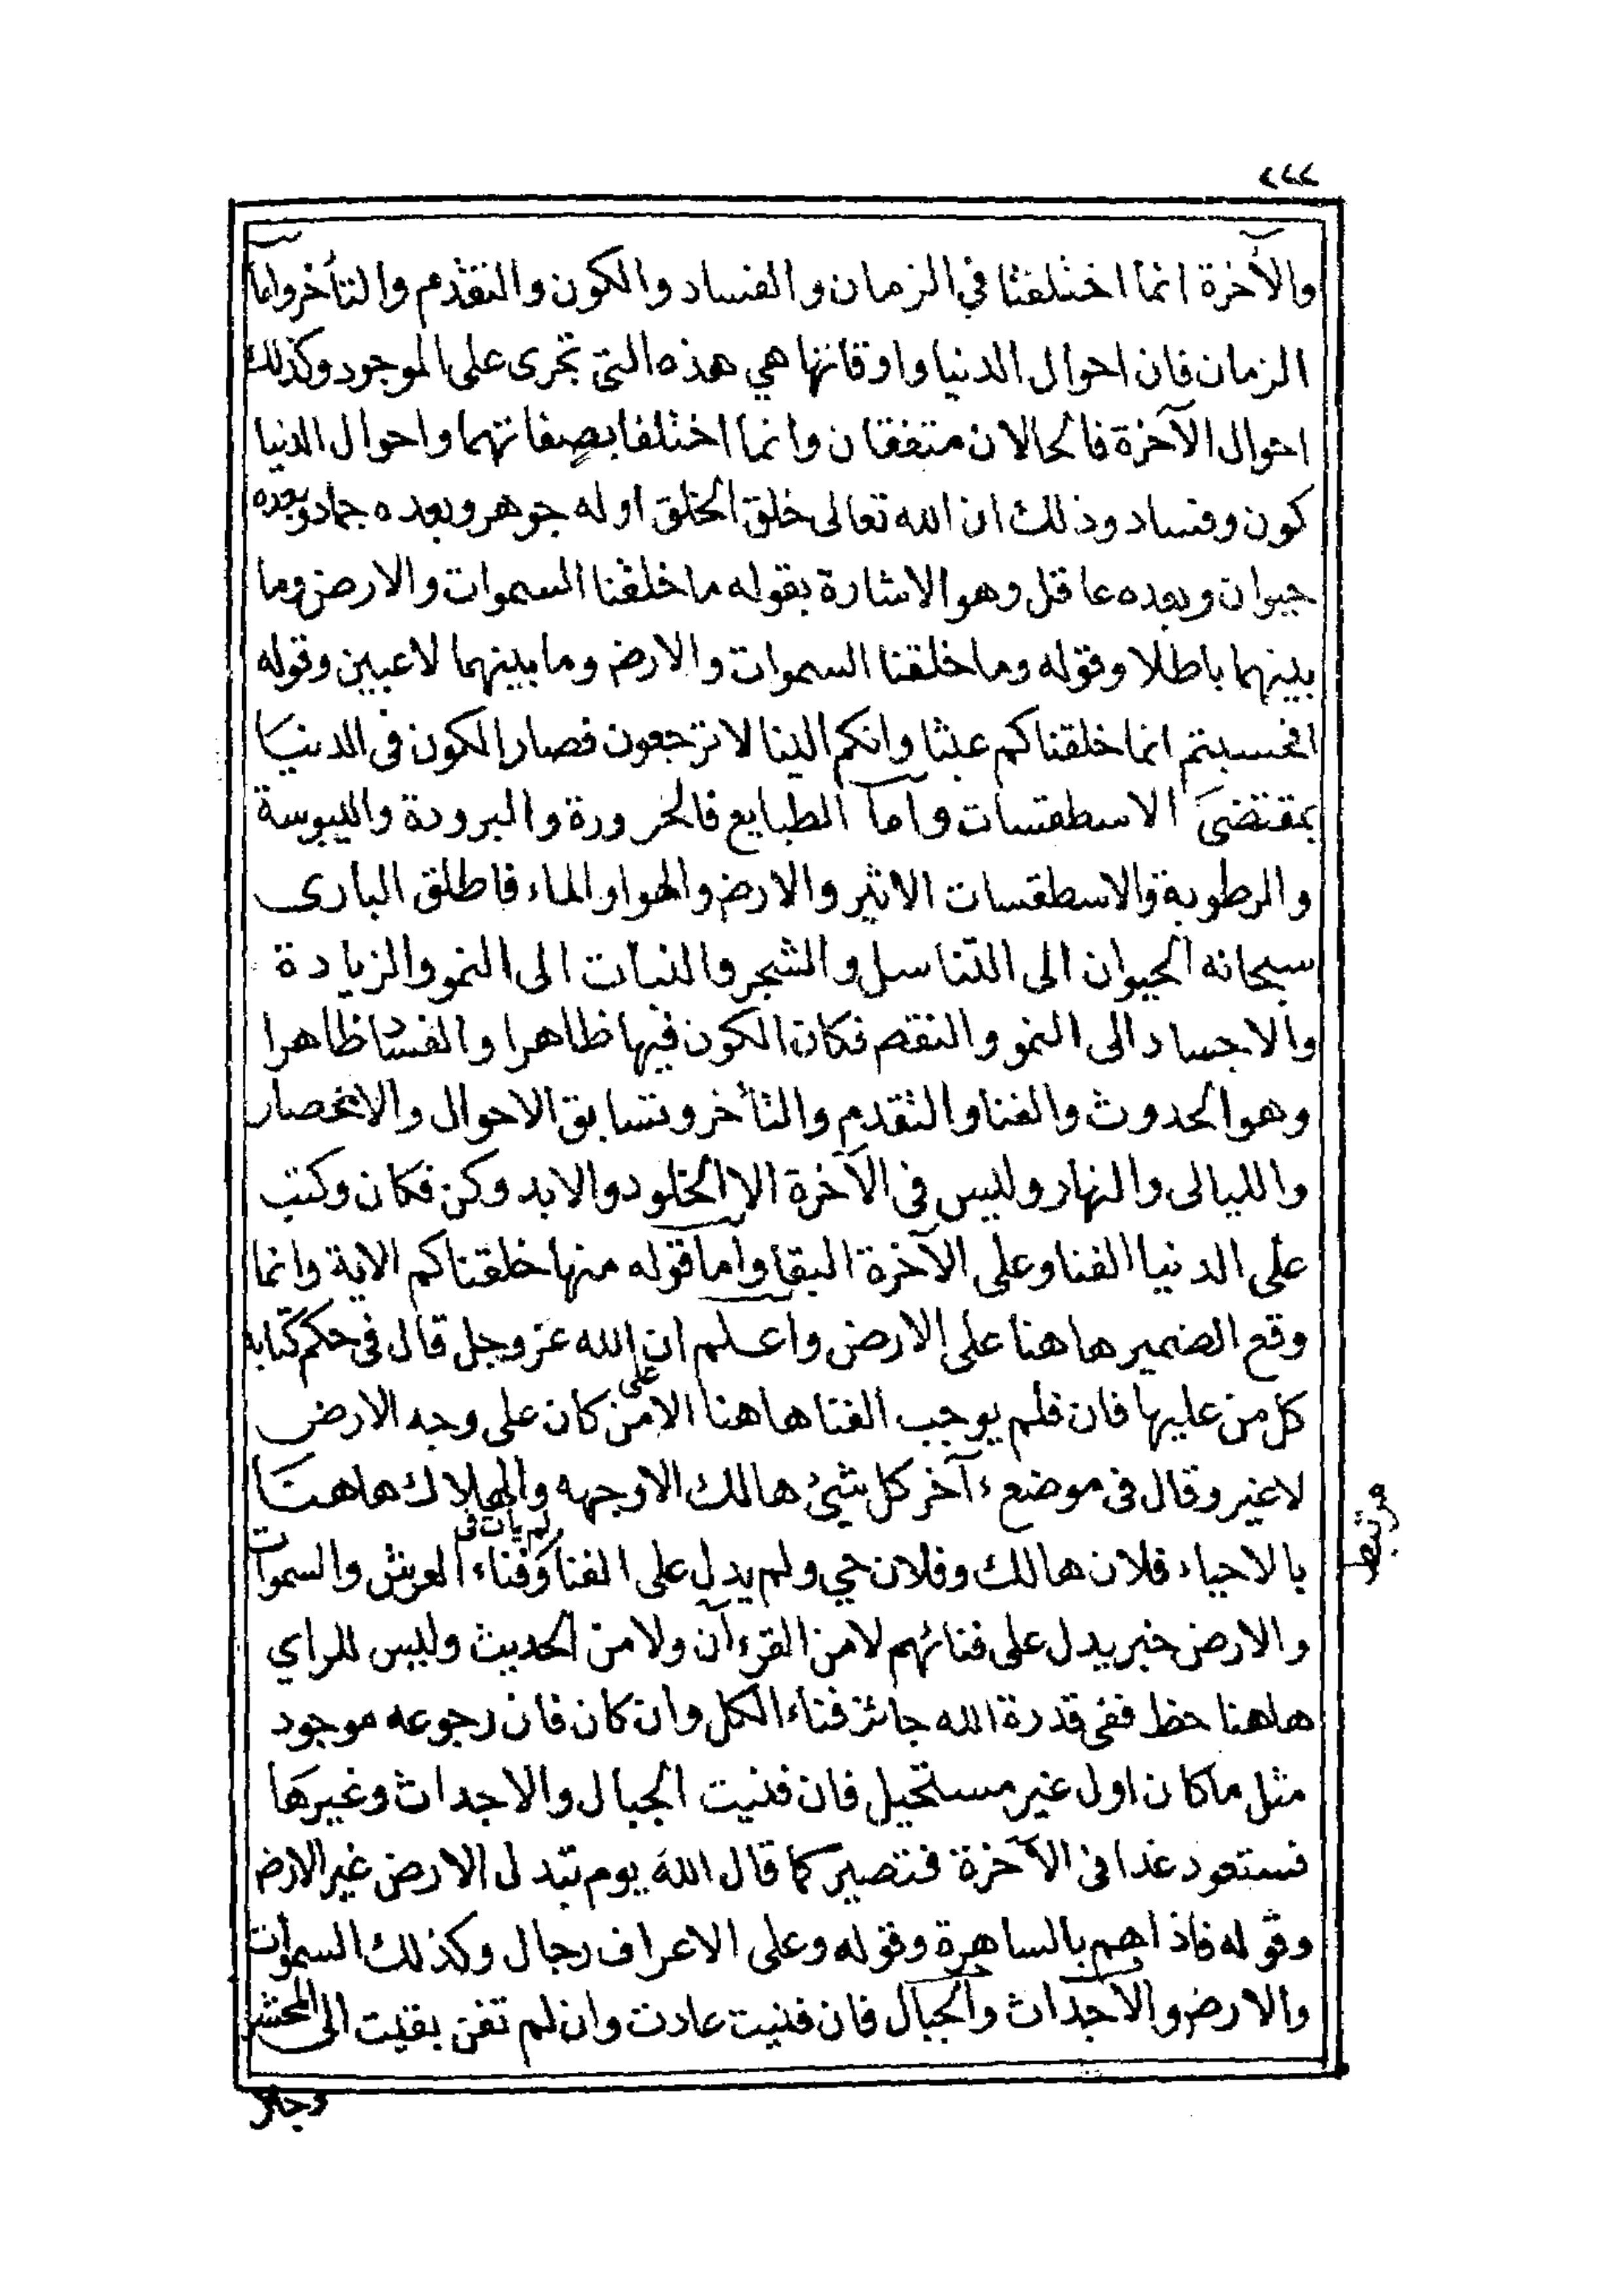 ٢٢٢
والأخرة انما اختلفتا في الزمان والفساد والكون والتقدم والتأخر واما
الزمان فان احوال الدنيا واوقاتها هي هذه التي تجرى على الموجود وكذلك
احوال الآخرة فالحالان متفقان وانما اختلفا بصفاتهما واحوال الدنيا
كون وفساد وذلك ان الله تعالى خلق الخلق اوله جوهر وبعده جماد وبعده
حيوان وبعده عاقل وهو الاشارة بقوله ما خلقنا السموات والارض وما
بينهما باطلا وقوله وما خلقنا السموات والارض وما بينهما لاعبين وقوله
افحسبتم انما خلقناكم عبثا وانكم الينا لا ترجعون فصار الكون فى الدنيا
بمقتضى الاسطقسات واما الطبايع فالحرورة والبرودة واليبوسة
والرطوبة والاسطقسات الاثير والارض والهوا والماء فاطلق البارى
سبحانه الحيوان الى التناسل والشجر والنبات الى النمو والزيادة
والاجساد الى النمو والنقص فكان الكون فيها ظاهرا والفساد ظاهرا
وهو الحدوث والفنا والتقدم والتأخر وتسابق الاحوال والانحصار
والليالى والنهار وليس فى الآخرة الا الخلود والابد وكن فكان وكتب
على الدنيا الفنا وعلى الآخرة البقا واما قوله منها خلقناكم الاية وانما
وقع الضمير هاهنا على الارض واعلم ان الله عز وجل قال فى حكم كتابه
كل من عليها فان فلم يوجب الفنا هاهنا الا على من كان على وجه الارض
لا غير وقال فى موضع ءآخر كل شئ هالك الا وجهه والهلاك هاهنا
بالاحياء فلان هالك وفلان حي ولم يدل على الفنا ولم يأت فى فناء العرش والسموات
والارض خبر يدل على فنائهم لا من القرءآن ولا من الحديث وليس للراي
هاهنا حظ ففى قدرة الله جائز فناء الكل وان كان فان رجوعه موجود
مثل ما كان اول غير مستحيل فان فنيت الجبال والاجداث وغيرها
فستعود غدا فى الآخرة فتصير كما قال الله يوم تبدل الارض غير الارض
وقوله فاذا هم بالساهرة وقوله وعلى الاعراف رجال وكذلك السموات
والارض والاجداث والجبال فان فنيت عادت وان لم تفن بقيت الى المحشر